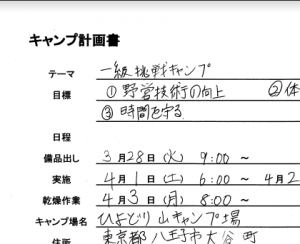 キャンプ計画書
テーマ 一級挑戦キャンプ
目標 ① 野営技術の向上 ② 体
③ 時間を守る
日程
備品出し 3月28日(火) 9:00 ~
実施 4月1日(土) 6:00 ~ 4月2
乾燥作業 4月3日(月) 8:00 ~
キャンプ場名 ひよどり山キャンプ場
住所 東京都八王子市大谷町